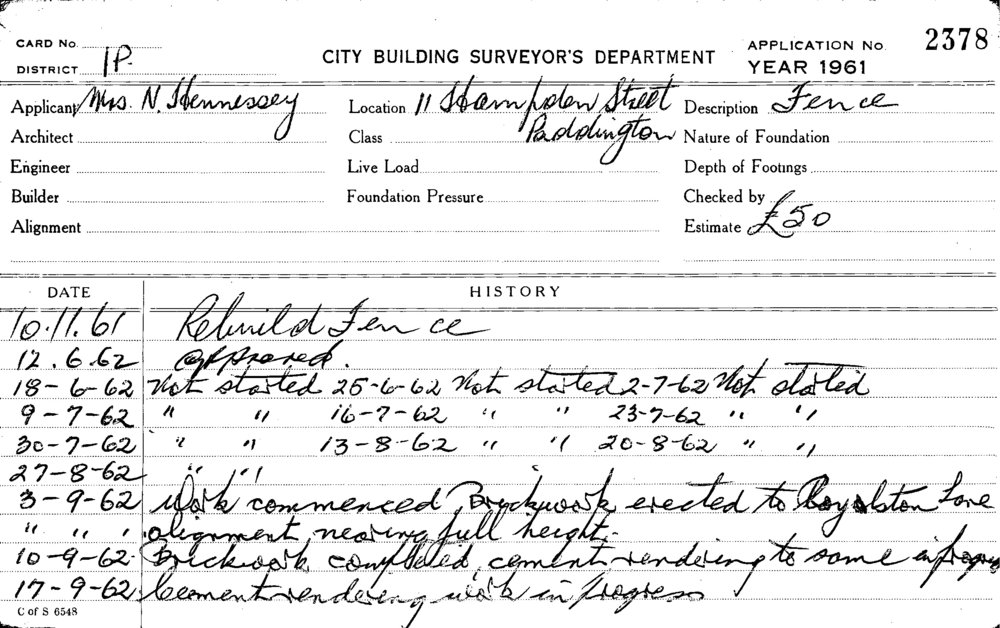 CARD No.
DISTRICT 1P.
CITY BUILDING SURVEYOR'S DEPARTMENT
APPLICATION No. 2378
YEAR 1961
Applicant Mrs. N. Hennessey Location 11 Hampden Street Description Fence
Architect Class Paddington Nature of Foundation
Engineer Live Load Depth of Footings
Builder Foundation Pressure Checked by
Alignment Estimate £50
DATE HISTORY
10.11.61 Rebuild Fence
12.6.62 Approved.
18-6-62 Not started 25-6-62 Not started 2-7-62 Not started
9-7-62 " " 16-7-62 " " 23-7-62 " "
30-7-62 " " 13-8-62 " " 20-8-62 " "
27-8-62 " "
3-9-62 Work commenced, Brickwork erected to Roylston Lane
" " " alignment, nearing full height.
10-9-62 Brickwork completed, cement rendering to same in progress
17-9-62 Cement rendering work in progress
C of S 6548